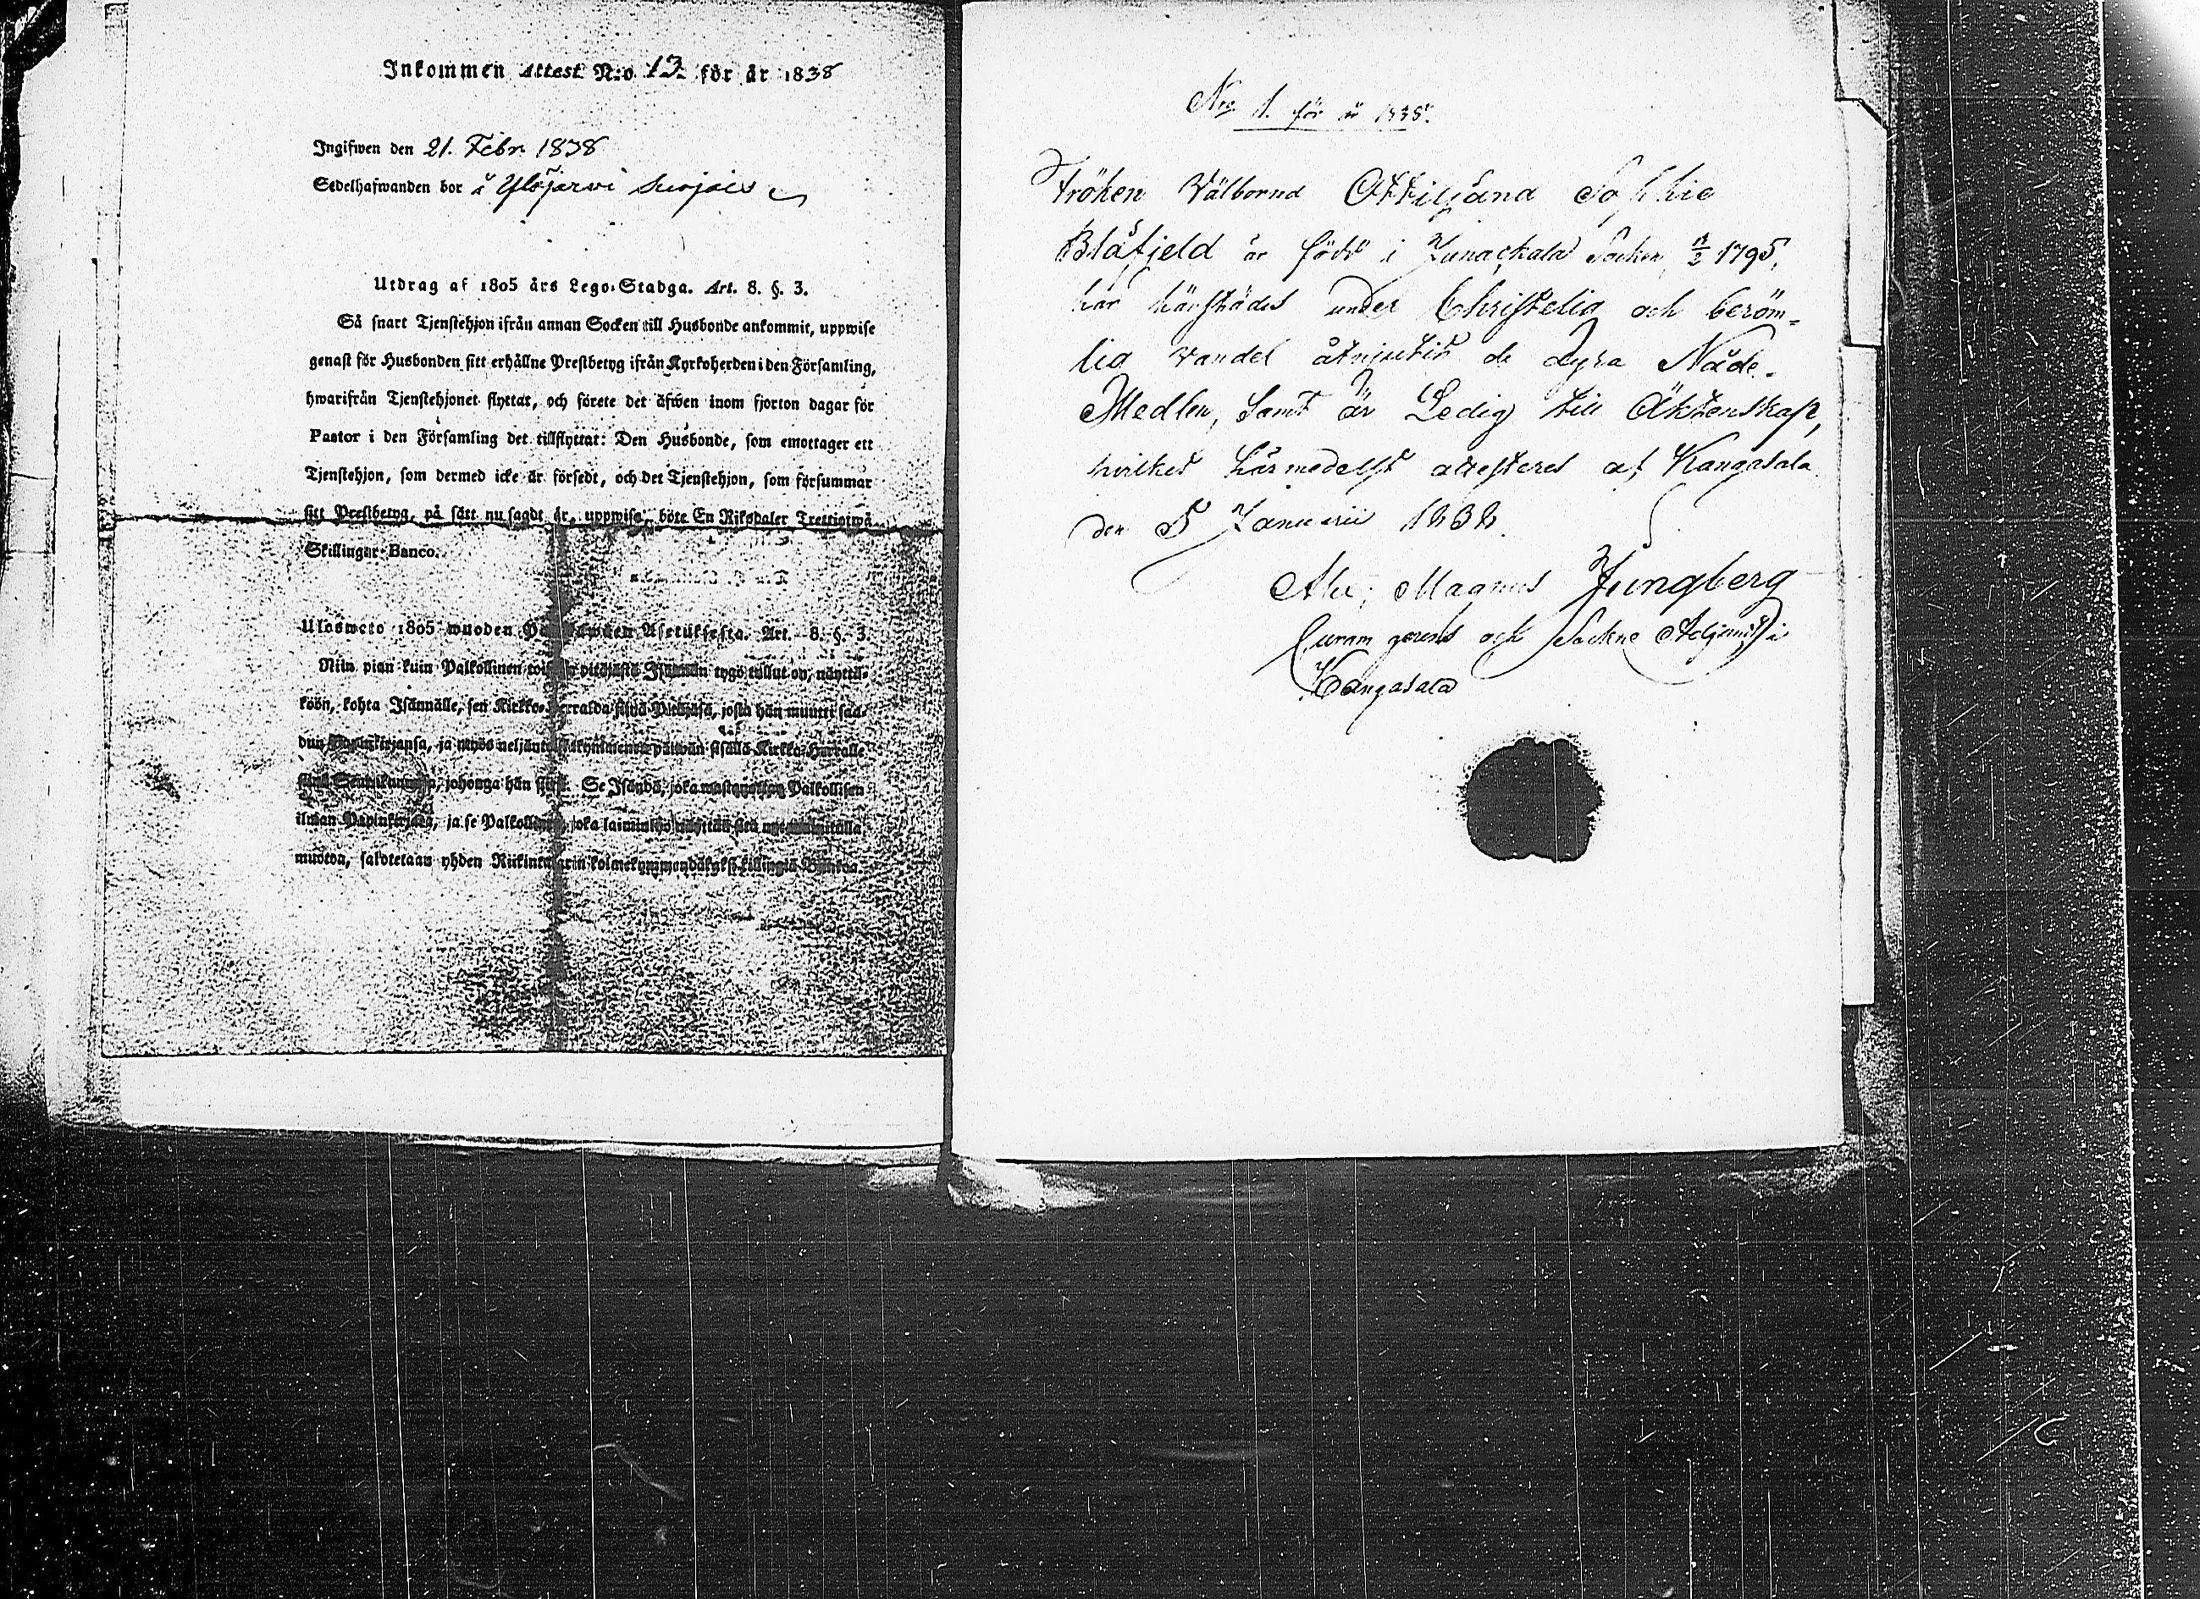 Inkommen Attest N:o 13. för år 1838
Ingifwen den 21. Febr. 1838
Sedelhafwanden bor å Ylöjärvi
Utdrag af 1805 års Lego-Stadga. Art. 8. §. 3.
Så snart Tjenstehjon ifrån annan Socken till Husbonde ankommit, uppwise
genast för Husbonden sitt erhållne Prestbetyg ifrån Kyrkoherden i den Församling,
hwarifrån Tjenstehjonet flyttat, och förete det äfwen inom fjorton dagar för
Pastor i den Församling det tillflyttat: Den Husbonde, som emottager ett
Tjenstehjon, som dermed icke är försedt, och det Tjenstehjon, som försummar
sitt Prestbetyg, på sätt nu sagdt är, uppwisa, böte En Riksdaler Trettiotwå
Skillingar Banco.
Ulosweto 1805 wuoden Asetuksesta. Art. 8. §. 3.
Niin pian kuin Palkollinen pitäjästä Isännän tygö tullut on, näyttä-
köön, kohta Isännälle, sen Kirkko-Herralda siinä Pitäjäsä, josta hän muutti saa-
dun Papinkirjansa, ja myös päiwän sisällä Kirkko-Herralle
johonga hän Se Isändä, joka Palkollisen
ilman Papinkirjata, ja se Palkollinen, joka
muotoa, sakotetaan yhden Riikintalarin kolmekymmendäkaksi killingiä
Nro 1. för år 1838.
Fröken Välborna Ottiliana Sophie
Blåfjeld är född i Janackala Socken 1795,
har härstädes under Christelig och beröm-
lig vandel åtnjutit de dyra Nåde-
Medlen, samt är Ledig till Äktenskap,
hvilket härmedelst attesteras af Kangasala
den 5 Januarii 1838.
Magnus Ljungberg
Curam gerens och Sockne Adjunct i
Kangasala